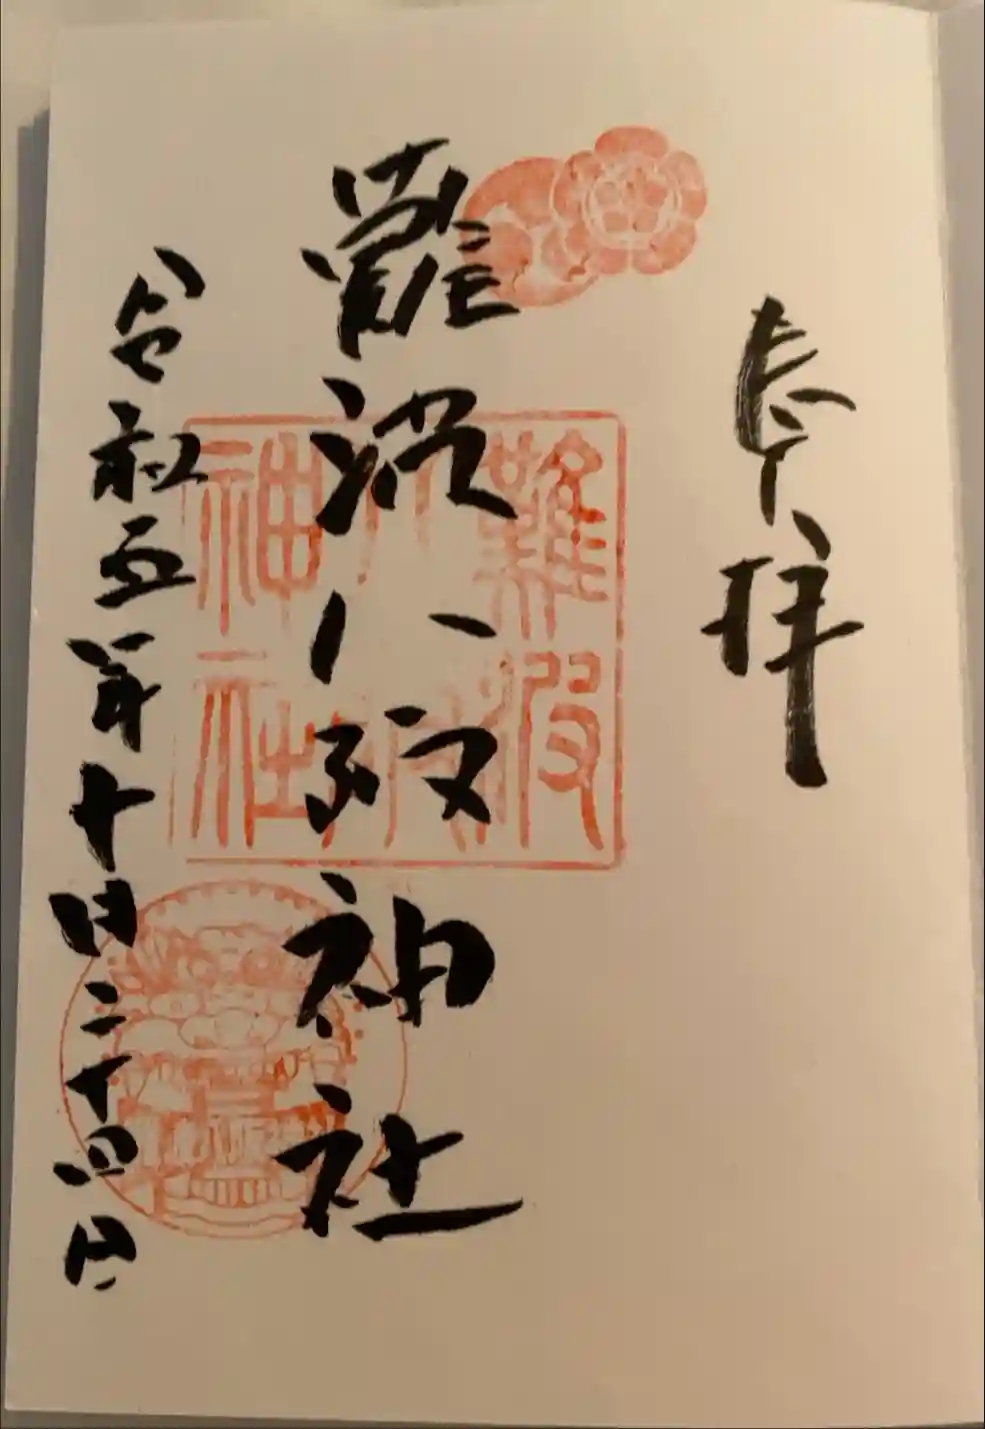 奉拝
難波八阪神社
難波
八阪
神社
令和五年十月二十四日